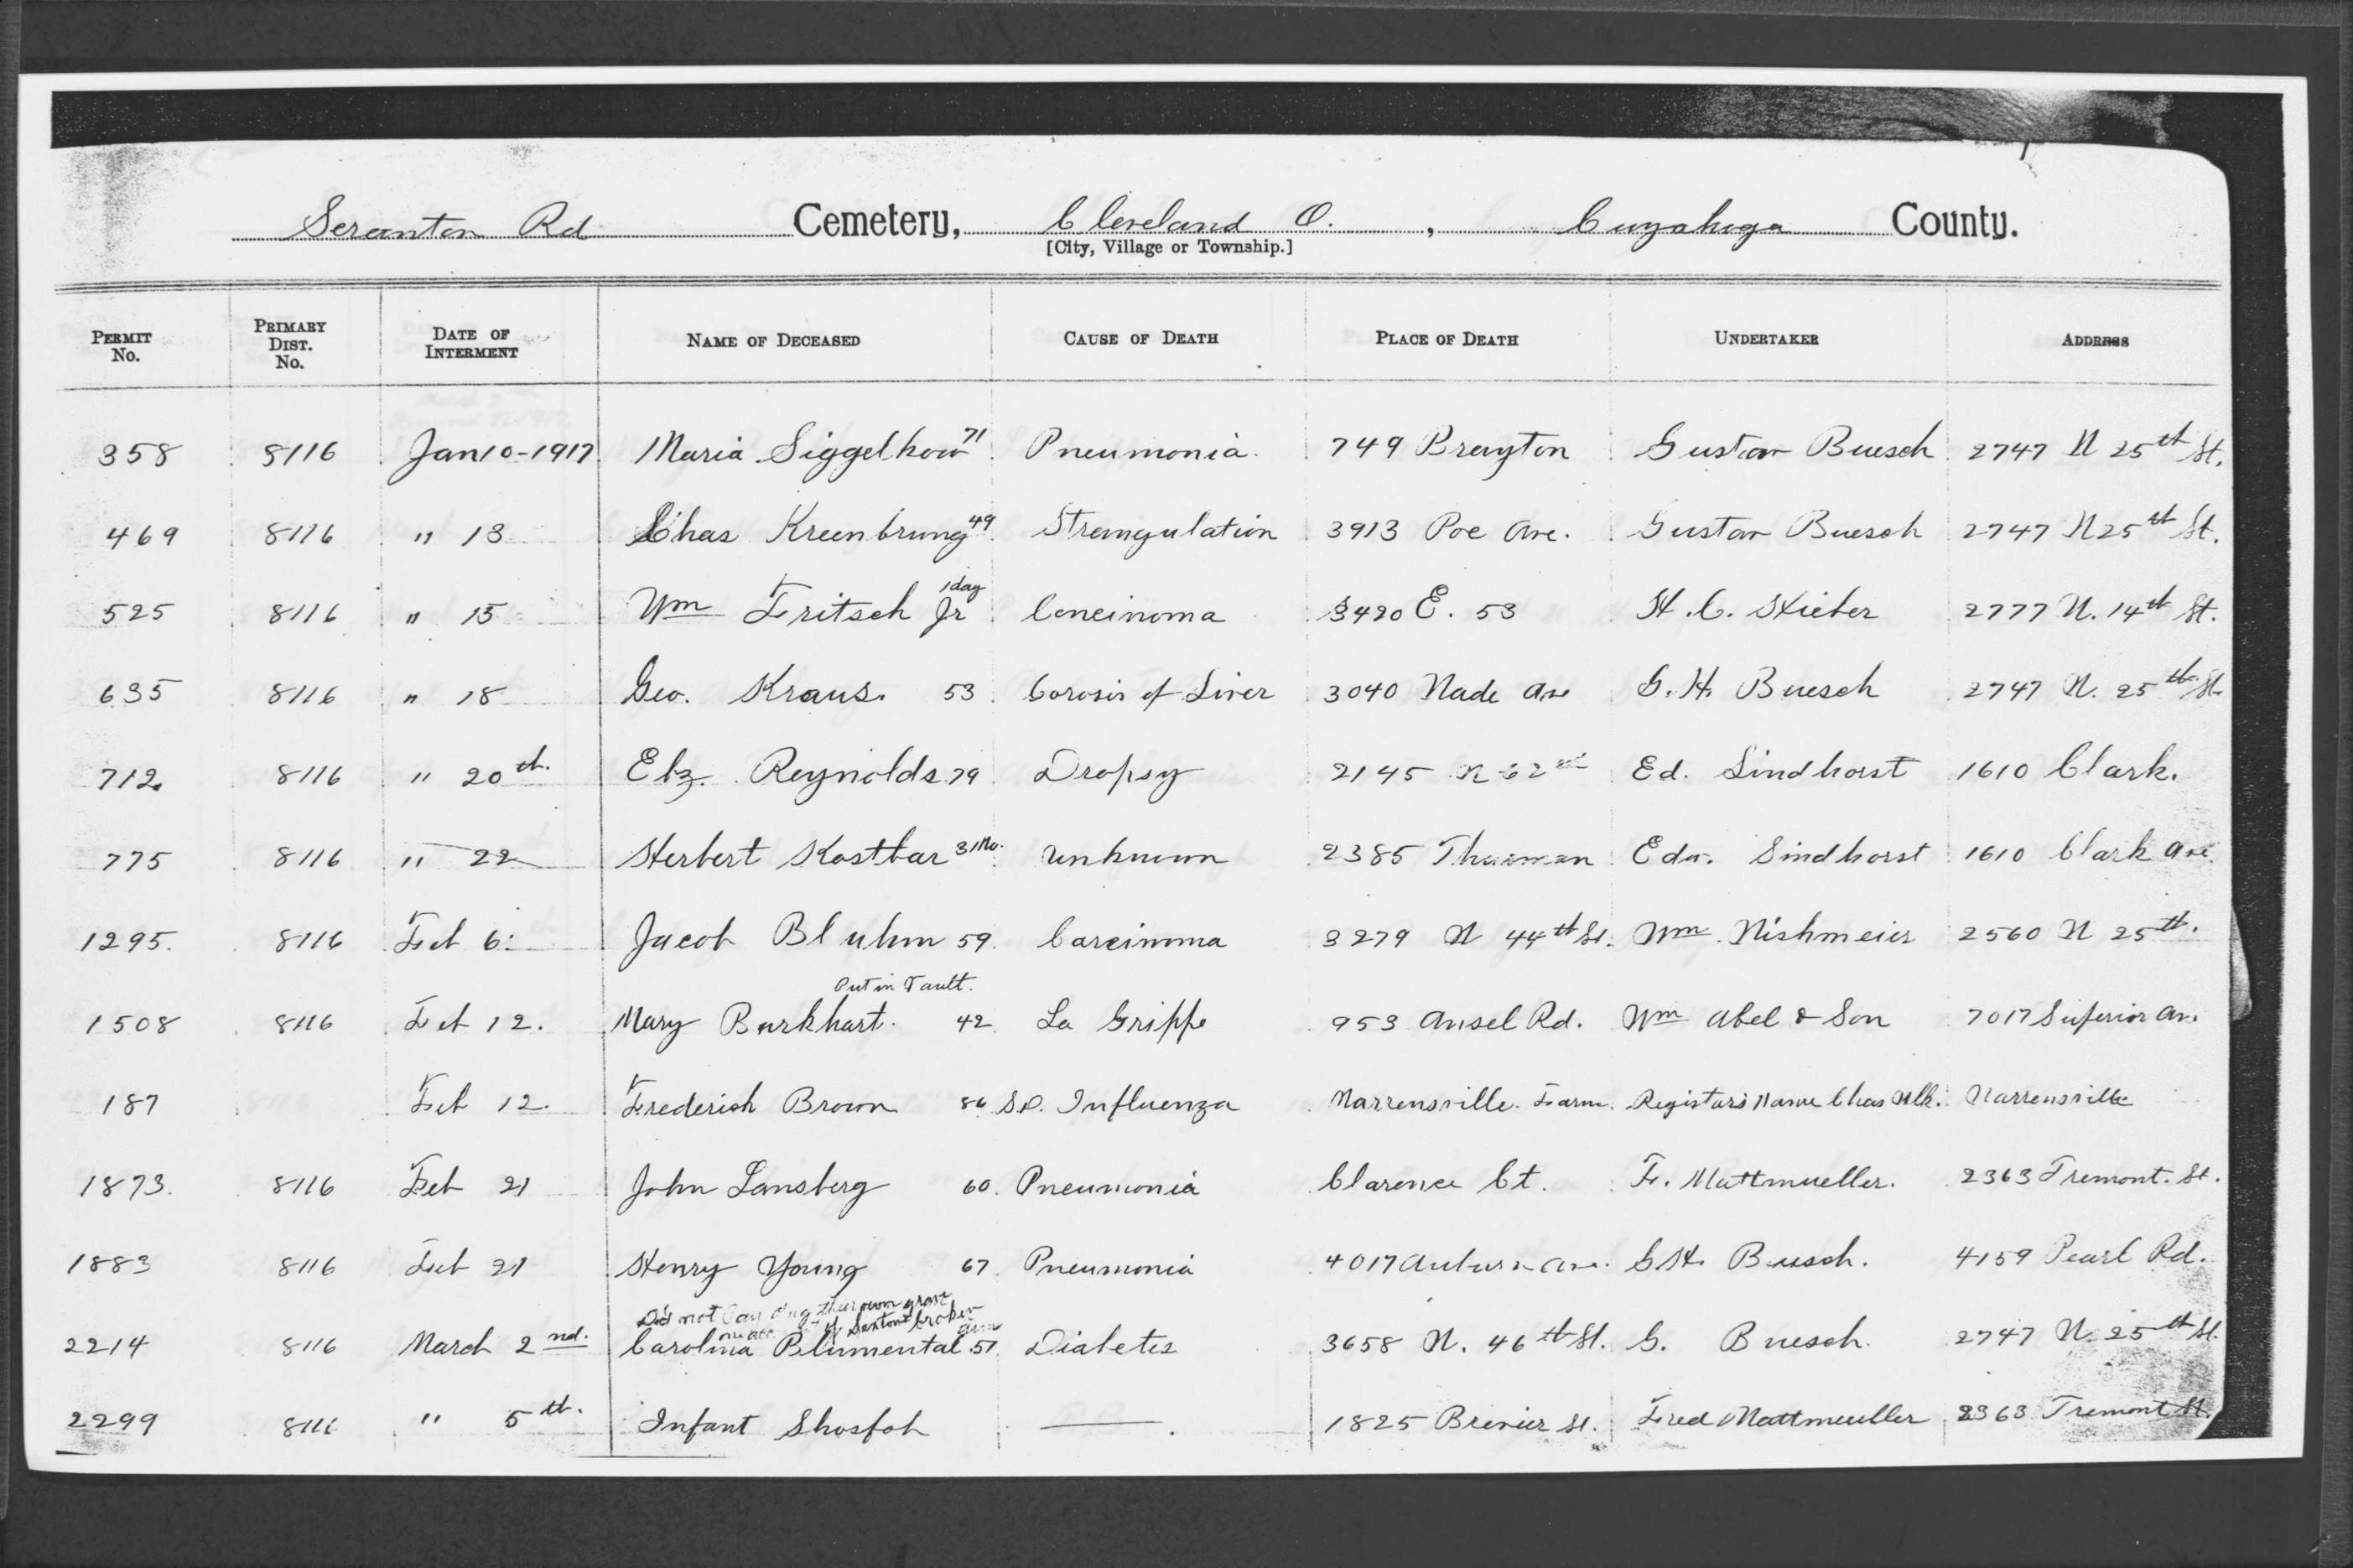 Scranton Rd Cemetery, Cleveland O. , Cuyahoga County.
[City, Village or Township.]
Permit No. Primary Dist. No. Date of Interment Name of Deceased Cause of Death Place of Death Undertaker Address
358 8116 Jan 10-1917 Maria Siggelkow 71 Pneumonia. 749 Brayton Gustav Buesch 2747 W 25th St.
469 8116 " 13 Chas Kreenbrung 49 Strangulation 3913 Poe Ave. Gustav Buesch 2747 W 25th St.
525 8116 " 15 Wm Fritsch Jr 1 day 3420 E. 53 H. C. Stieber 2777 W. 14th St.
635 8116 " 18 Geo. Kraus. 53 Corosis of Liver 3040 Wade Ave G. H. Buesch 2747 W. 25th St.
712. 8116 " 20th. Elz. Reynolds 79 Dropsy 2145 W Ed. Lindhorst 1610 Clark.
775 8116 " 22 Herbert Kostbar 3 Mo. Unknown 2385 Thurman Edw. Lindhorst 1610 Clark Ave.
1295. 8116 Feb 6. Jacob Bluhm 59. Carcinoma 3279 W 44th St. Wm. Nishmeier 2560 W 25th.
Put in Vault.
1508 8116 Feb 12. Mary Burkhart. 42 La Grippe 953 Ansel Rd. Wm Abel & Son 7017 Superior Av.
187 Feb 12. Frederick Brown 86 Influenza Warrensville. Farm. Registars Name Chas Warrensville
1873. 8116 Feb 21 John Lansberg 60. Pneumonia Clarence Ct. F. Mattmueller. 2363 Tremont. St.
1883 8116 Feb 21 Henry Young 67 Pneumonia 4017 Auburn Ave. G H. Busch. 4159 Pearl Rd.
Did not Pay dug their own grave
of Sextons broken arm
2214 8116 March 2nd. Carolina Blumental 57 Diabetes 3658 W. 46th St. G. Buesch. 2747 W. 25th St.
2299 8116 " 5th. Infant Shosfoh —. 1825 Brevier St. Fred Mattmueller 2363 Tremont St.